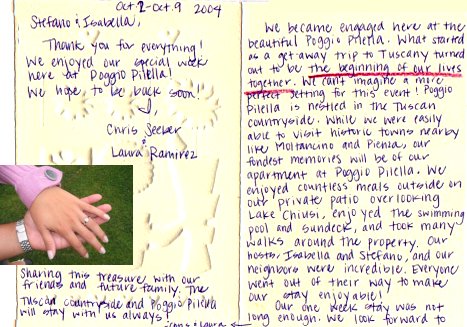 Oct 2 - Oct. 9 2004
Stefano & Isabella,
Thank you for everything!
We enjoyed our special week
here at Poggio Pilella!
We hope to be back soon!
Chris Seeber
&
Laura Ramirez
We became engaged here at the
beautiful Poggio Pilella. What started
as a get away trip to Tuscany turned
out to be the beginning of our lives
together. We can't imagine a more
perfect setting for this event! Poggio
Pilella is nestled in the Tuscan
countryside. While we were easily
able to visit historic towns nearby
like Moltancino and Pienza, our
fondest memories will be of our
apartment at Poggio Pilella. We
enjoyed countless meals outside on
our private patio overlooking
Lake Chiusi, enjoyed the swimming
pool and sundeck, and took many
walks around the property. Our
hosts, Isabella and Stefano, and our
neighbors were incredible. Everyone
went out of their way to make
our stay enjoyable!
Our one week stay was not
long enough. We look forward to
Sharing this treasure with our
friends and future family. The
Tuscan countryside and Poggio Pilella
will stay with us always!
Chris & Laura